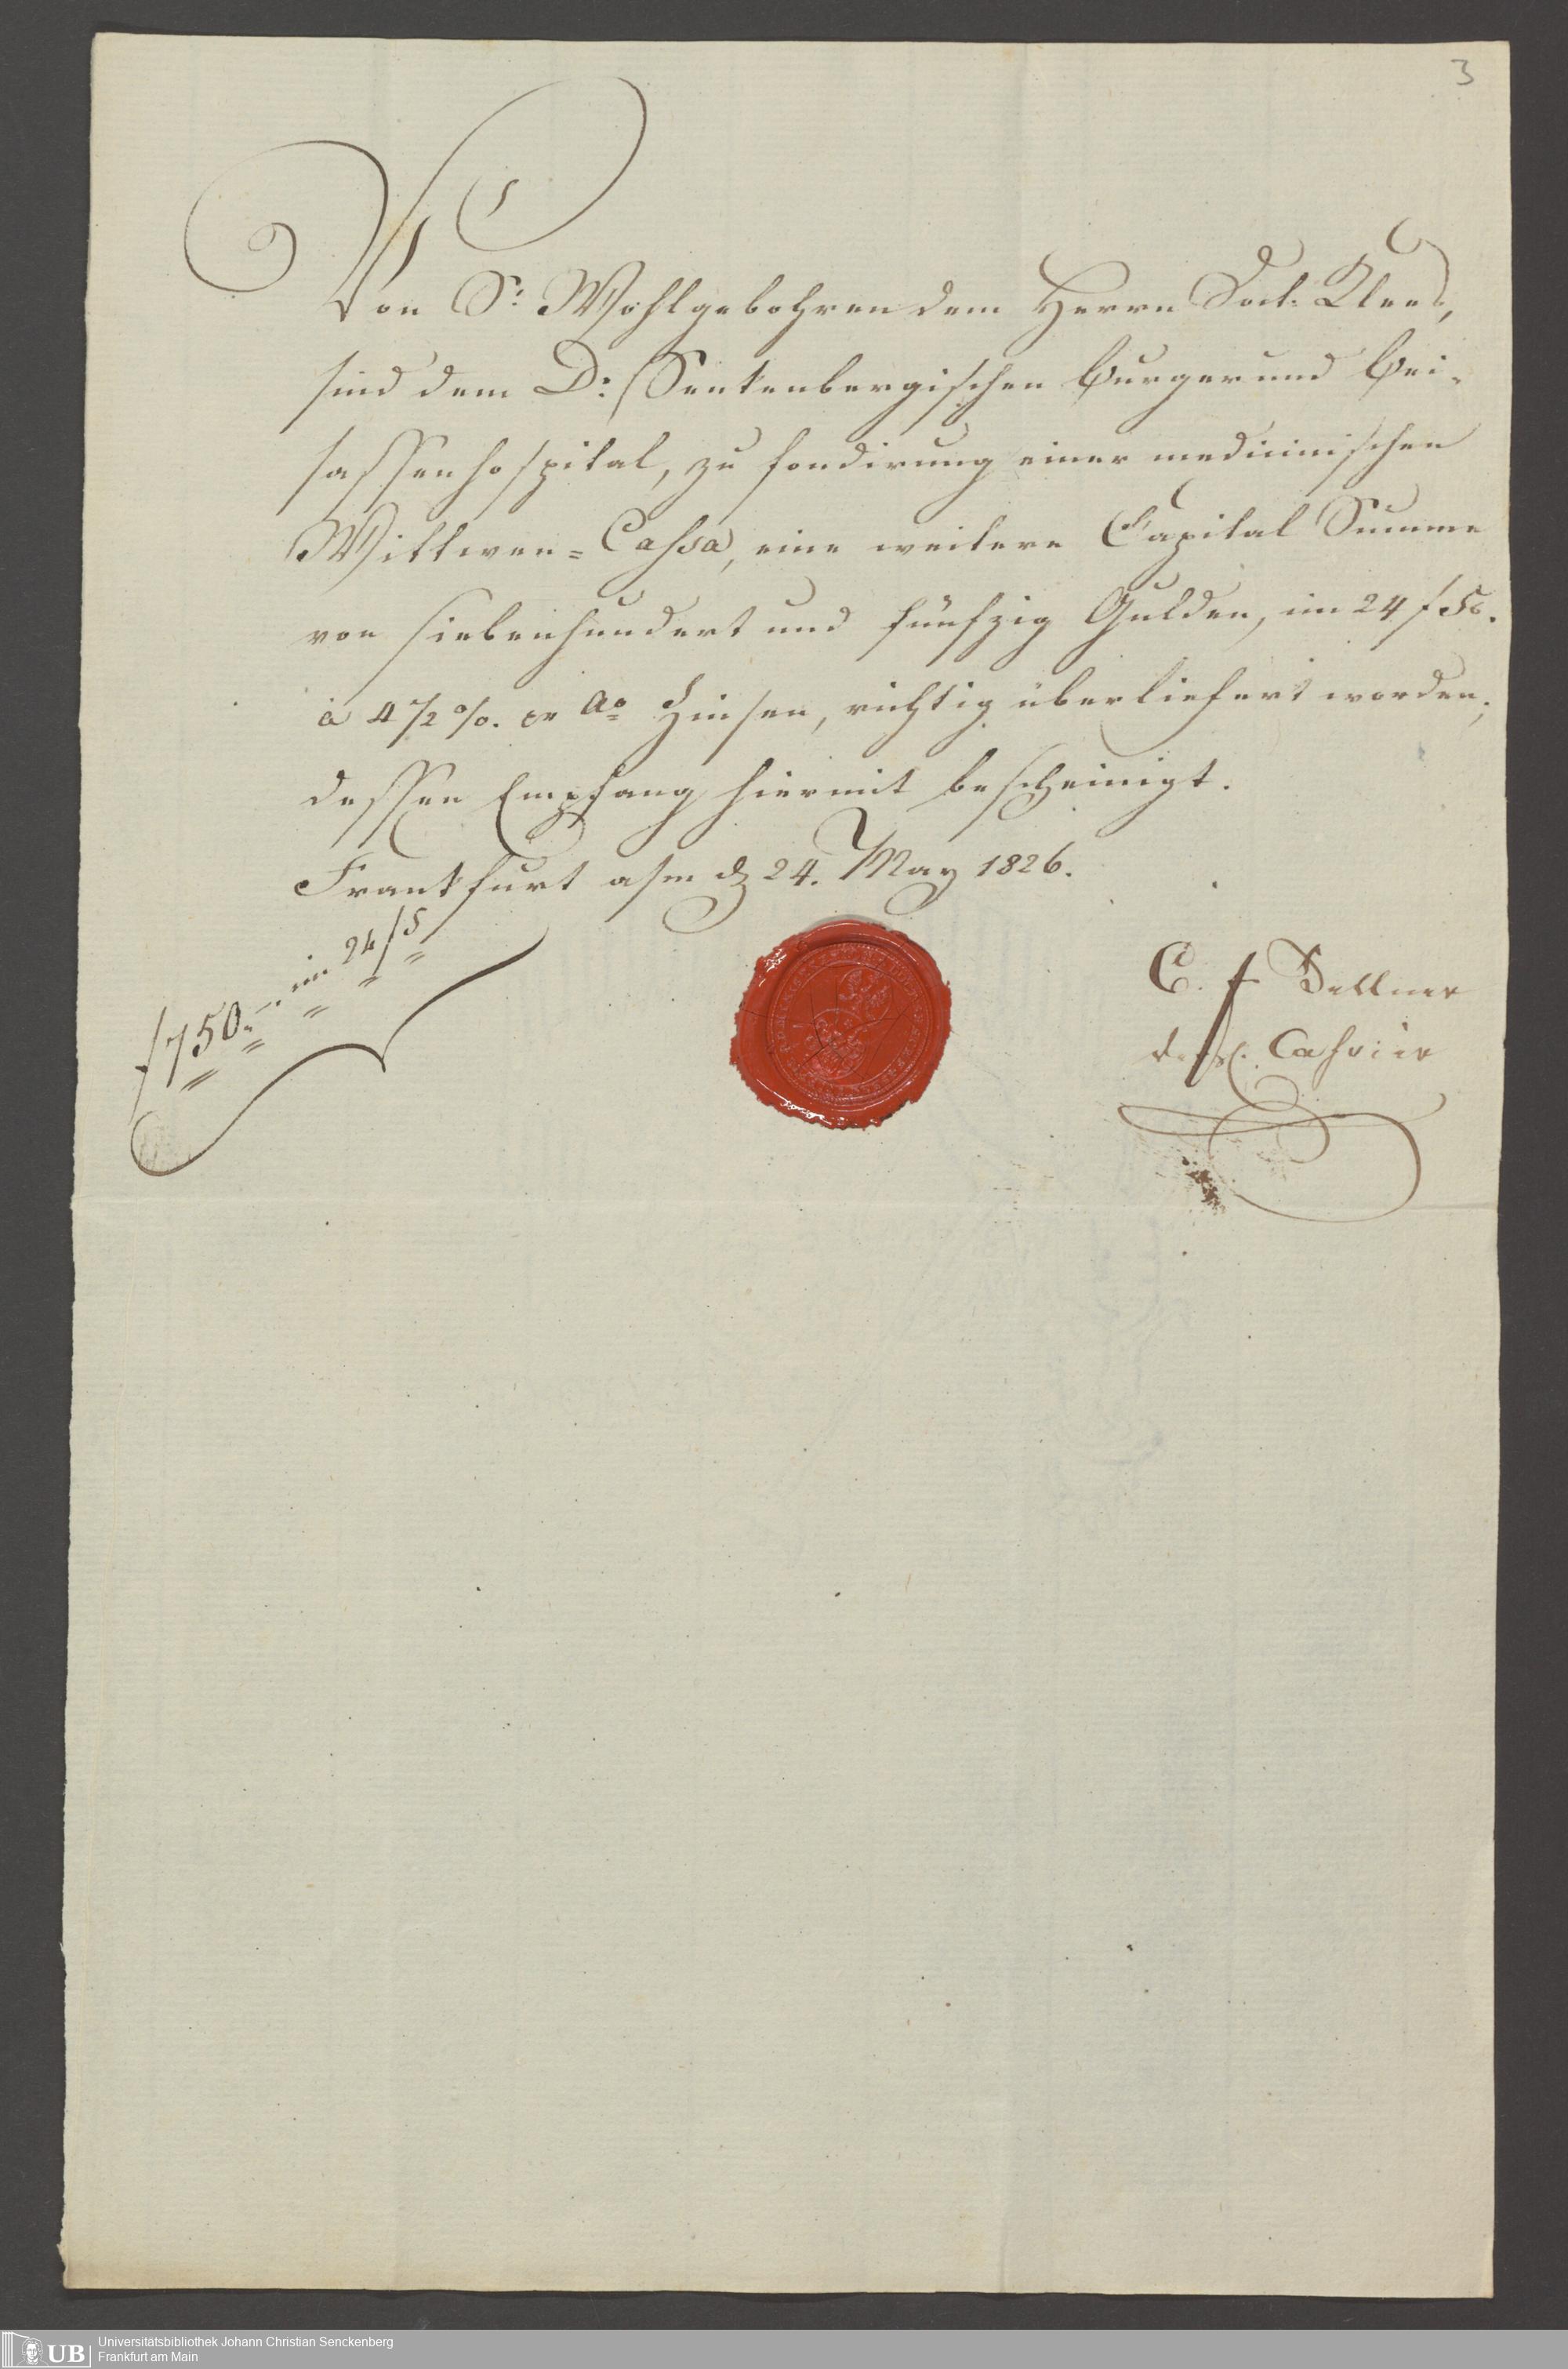 3
Von Sr: Wohlgebohren dem Herrn Doct: Kloos,
sind dem D: Senkenbergischen Burger und Bei-
sassenhospital, zu fondirung einer medicinischen
Wittwen=Cassa, eine weitere Capital Summe
von siebenhundert und fünfzig Gulden, im 24 f Fs.
à 4 1/2 %. pr Ao Zinsen, richtig überliefert worden;
dessen Empfang hiermit bescheinigt.
Frankfurt a/m d 24. May 1826.
f 750.-. im 24 f
C. F. Zellner
Cassier
UB Universitätsbibliothek Johann Christian Senckenberg
Frankfurt am Main